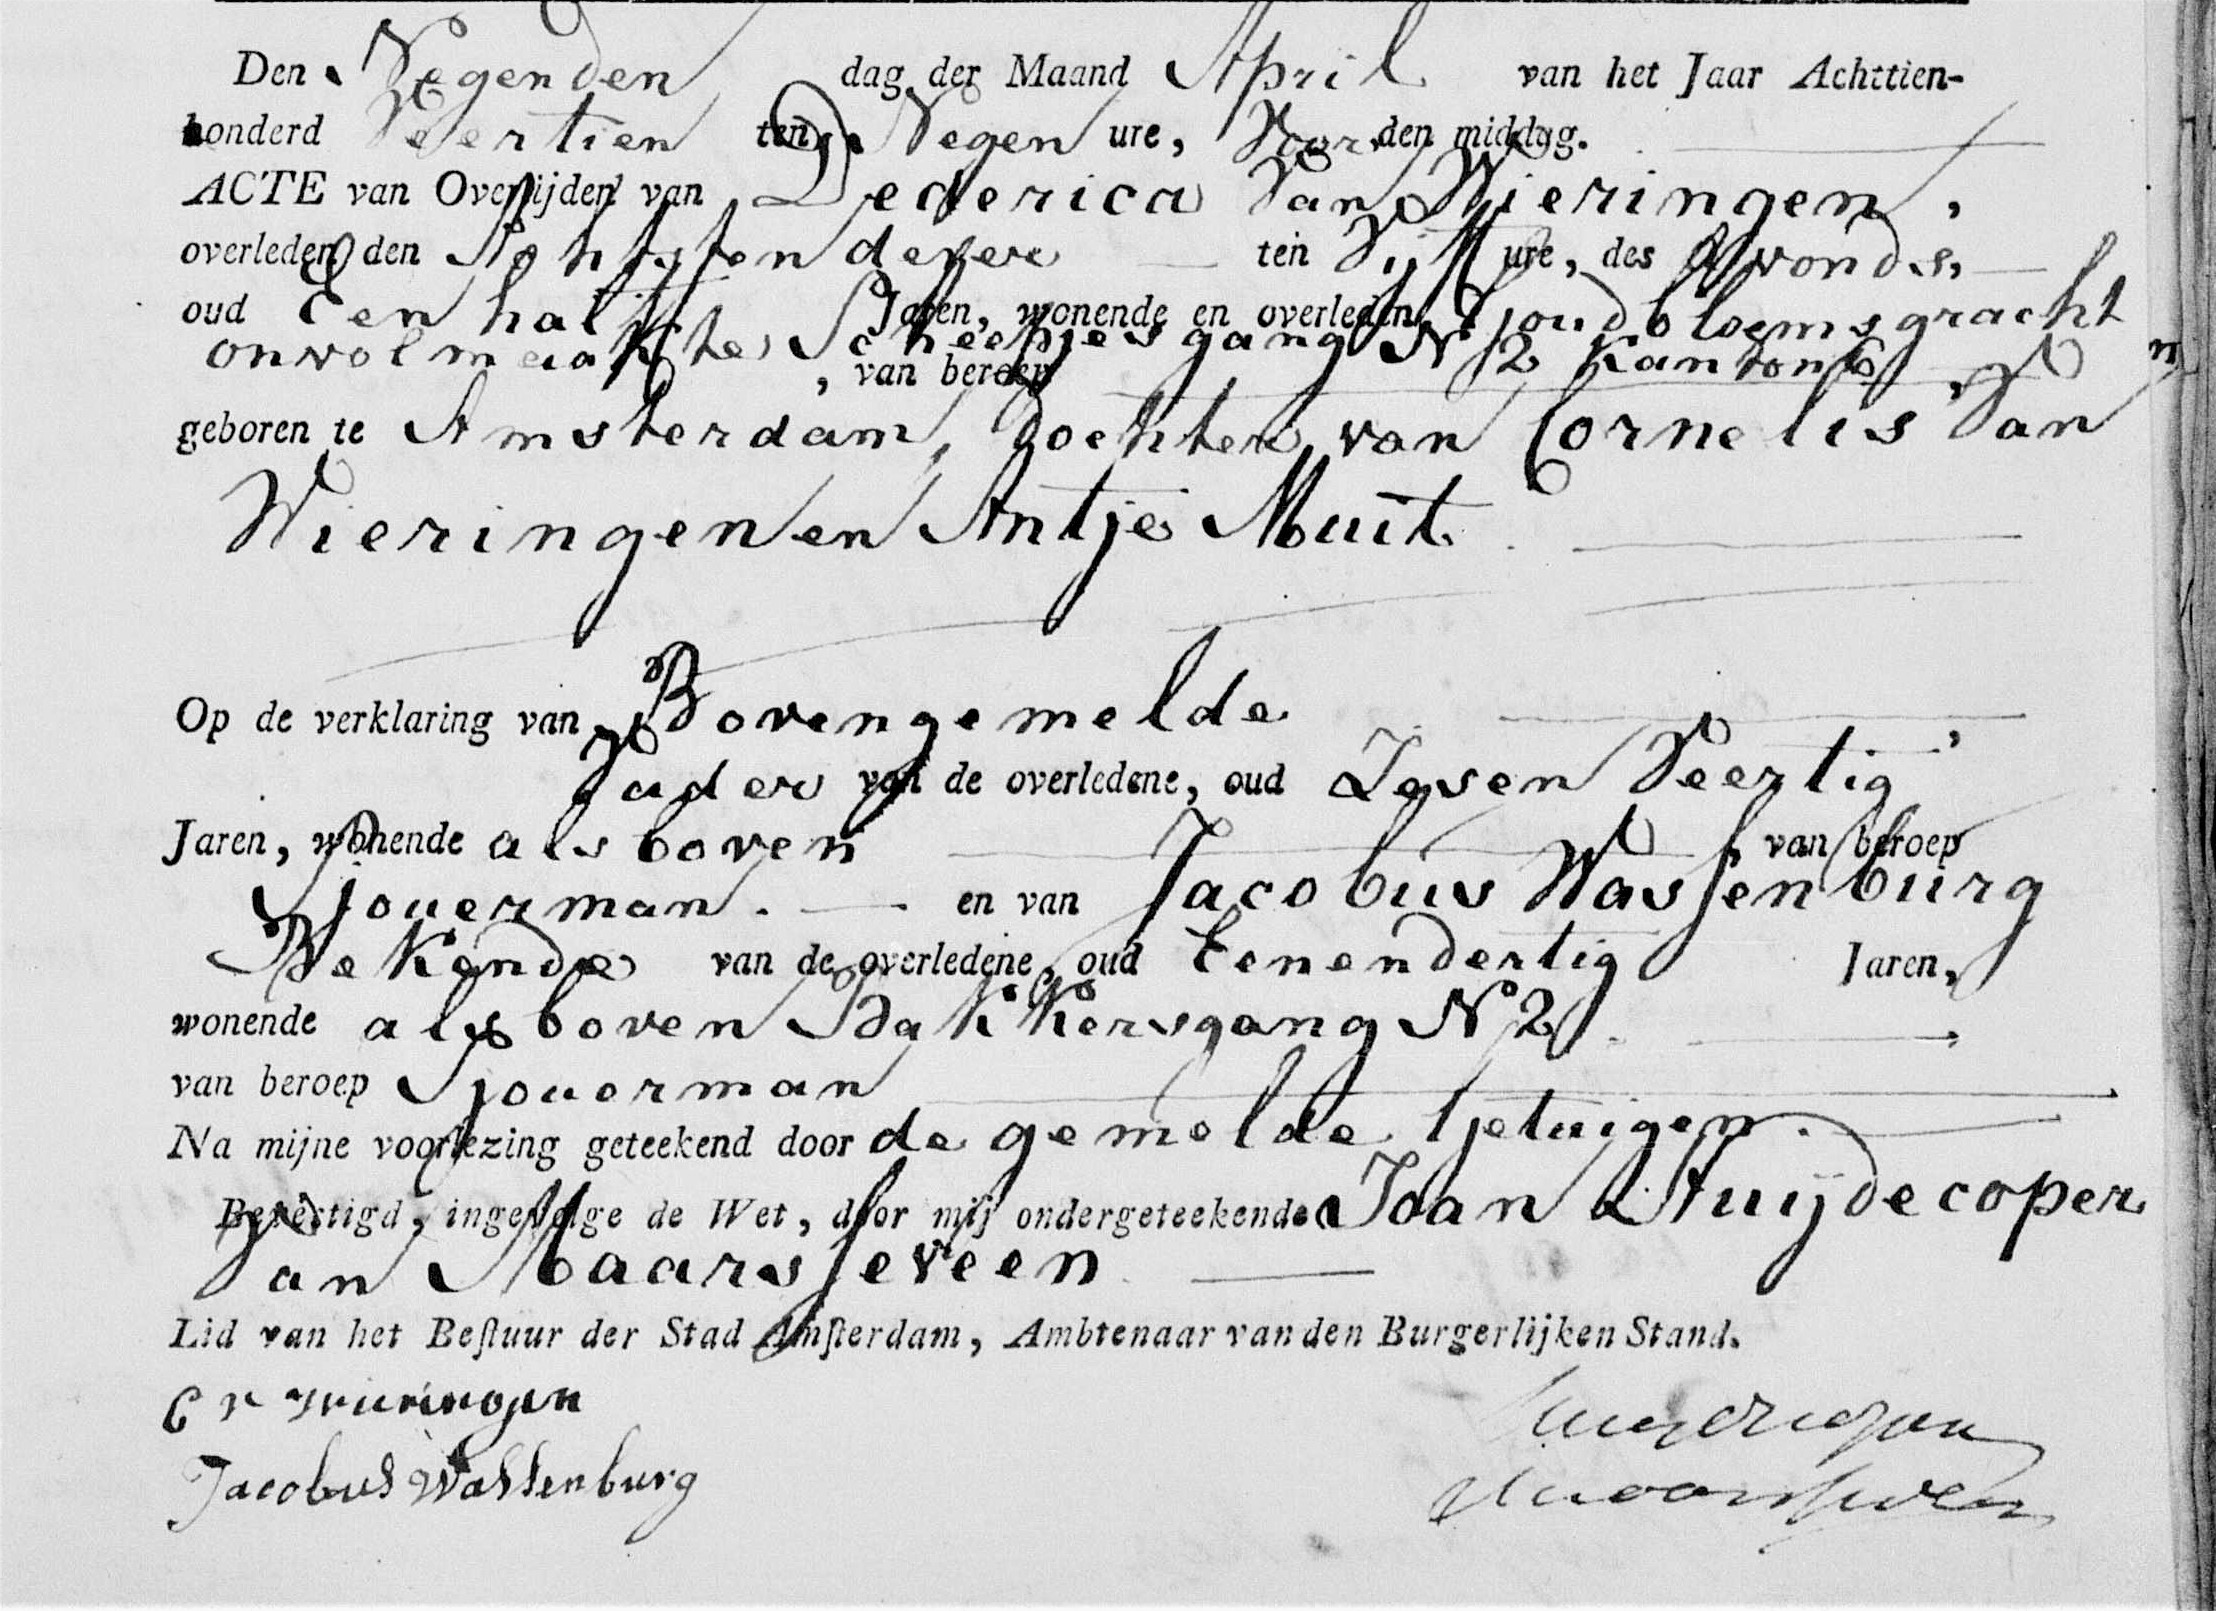 Den Negenden dag der Maand April van het Jaar Achttien-
honderd Veertien ten Negen ure, Voor den middag.
ACTE van Overlijden van Dederica Van Wieringen,
overleden den Achtsten dezer ten Vijff ure, des Avonds,
oud Een half Jaren, wonende en overleden Goudbloemsgracht
onvolmaakte Scheepjesgang N 2 Kanton 6
, van beroep
geboren te Amsterdam, Dochter van Cornelis Van
Wieringen en Antje Muit.
Op de verklaring van Bovengemelde
Vader van de overledene, oud Zeven Veertig
Jaren, wonende als boven, van beroep
Sjouerman. en van Jacobus Wassenburg
Bekende van de overledene, oud Eenendertig Jaren,
wonende als boven Bakkersgang N 2
van beroep Sjouerman
Na mijne voorlezing geteekend door de gemelde Getuigen.
Bevestigd, ingevolge de Wet, door mij ondergeteekende Joan Huijdecoper
Van Maarsseveen
Lid van het Bestuur der Stad Amsterdam, Ambtenaar van den Burgerlijken Stand.
C v Wieringen
Jacobus Wassenburg